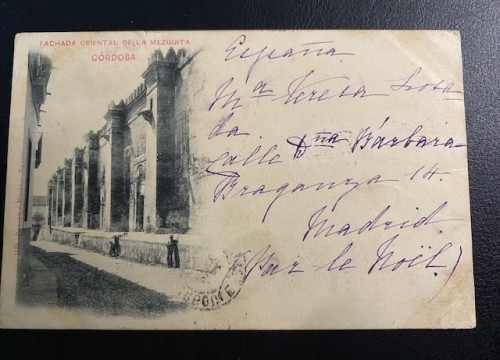 FACHADA ORIENTAL DE LA MEZQUITA
CÓRDOBA
España
Mª Teresa Losa
da
Calle Dña Bárbara
Braganza 14.
Madrid
Par le Noël)